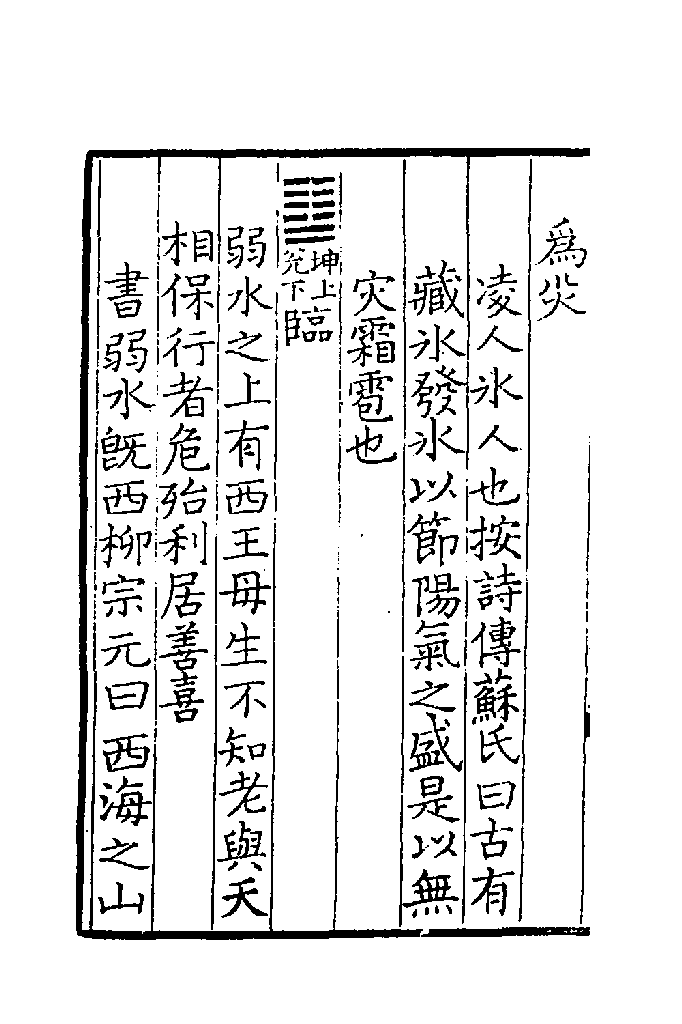 爲灾
凌人氷人也按詩傳蘇氏曰古有
藏氷發氷以節陽氣之盛是以無
灾霜雹也
䷒坤上兌下臨
弱水之上有西王母生不知老與天
相保行者危殆利居善喜
書弱水旣西柳宗元曰西海之山